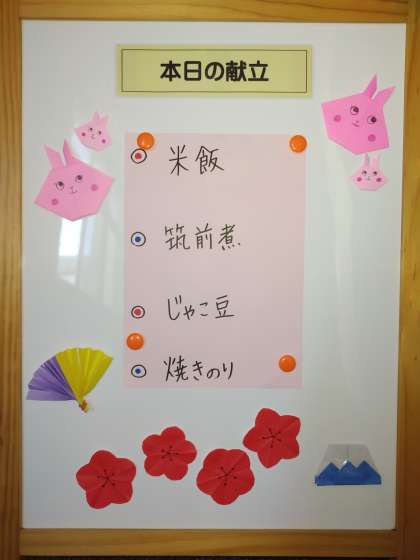 本日の献立
米飯
筑前煮
じゃこ豆
焼きのり